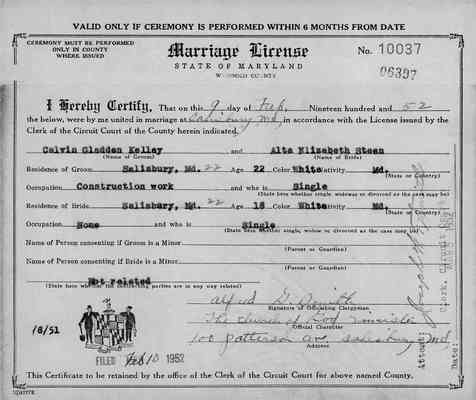 VALID ONLY IF CEREMONY IS PERFORMED WITHIN 6 MONTHS FROM DATE
CEREMONY MUST BE PERFORMED
ONLY IN COUNTY
WHERE ISSUED
Marriage License
STATE OF MARYLAND
COUNTY
No. 10037
06397
I Hereby Certify, That on this 9 day of Feb, Nineteen hundred and 52
the below, were by me united in marriage at Salisbury Md, in accordance with the License issued by the
Clerk of the Circuit Court of the County herein indicated.
Calvin Gladden Kelley and Alta Elizabeth Steen
(Name of Groom) (Name of Bride)
Residence of Groom Salisbury, Md. 22 Age 22 Color White Nativity Md.
(State or Country)
Occupation Construction work and who is Single
(State here whether single, widower or divorced as the case may be)
Residence of Bride Salisbury, Md. 22 Age 18 Color White Nativity Md.
(State or Country)
Occupation None and who is Single
(State here whether single, widow or divorced as the case may be)
Name of Person consenting if Groom is a Minor
(Parent or Guardian)
Name of Person consenting if Bride is a Minor
(Parent or Guardian)
Not related
(State here whether the contracting parties are in any way related)
Signature of Officiating Clergyman
The Church of God minister
Official Character
100 Patterson Ave, Salisbury Md.
Address
1/8/51
FILED Feb 10 1952
Attest:
Clerk, Circuit Court
Date:
This Certificate to be retained by the office of the Clerk of the Circuit Court for above named County.